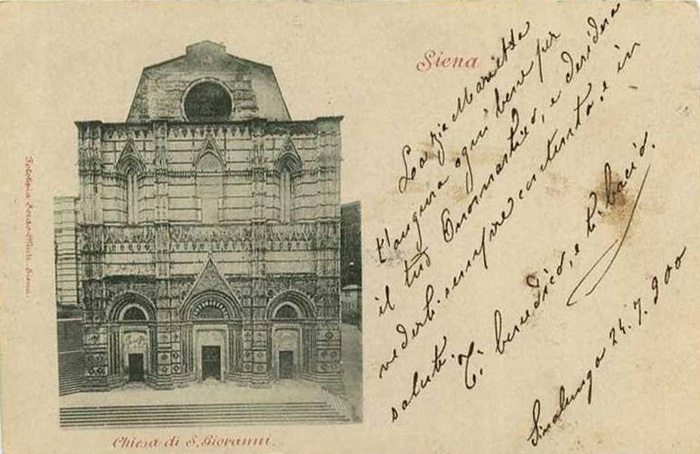 Siena
La zia Marietta
t'augura ogni bene per
il tuo Onomastico, e desidera
vederti sempre contenta, e in
salute.
Ti benedico, e ti bacio.
Sinalunga 24.7.900
Chiesa di S. Giovanni.
Fotografia Siena.